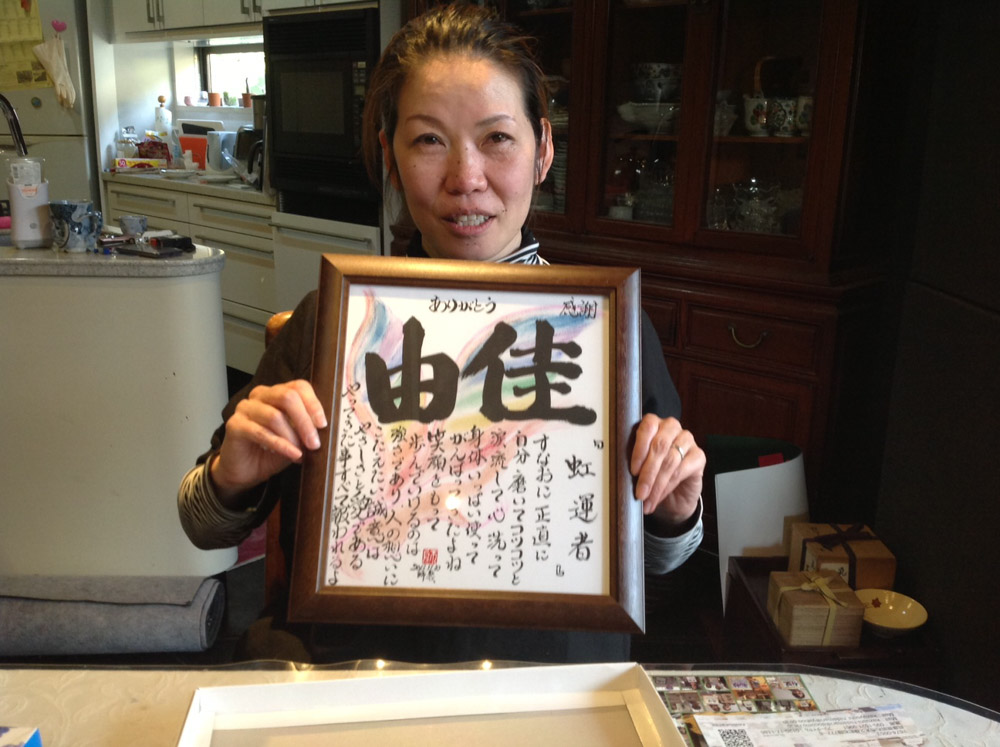 ありがとう
感謝
由佳
『虹運者』
すなおに正直に
自分磨いてコツコツと
涙流して心洗って
身体いっぱい使って
がんばってきたよね
笑顔をもって
歩んでいけるのは
強さであり人の想いに
こたえたい誠意は
やさしさと愛である
やってきた事すべて報われるよ